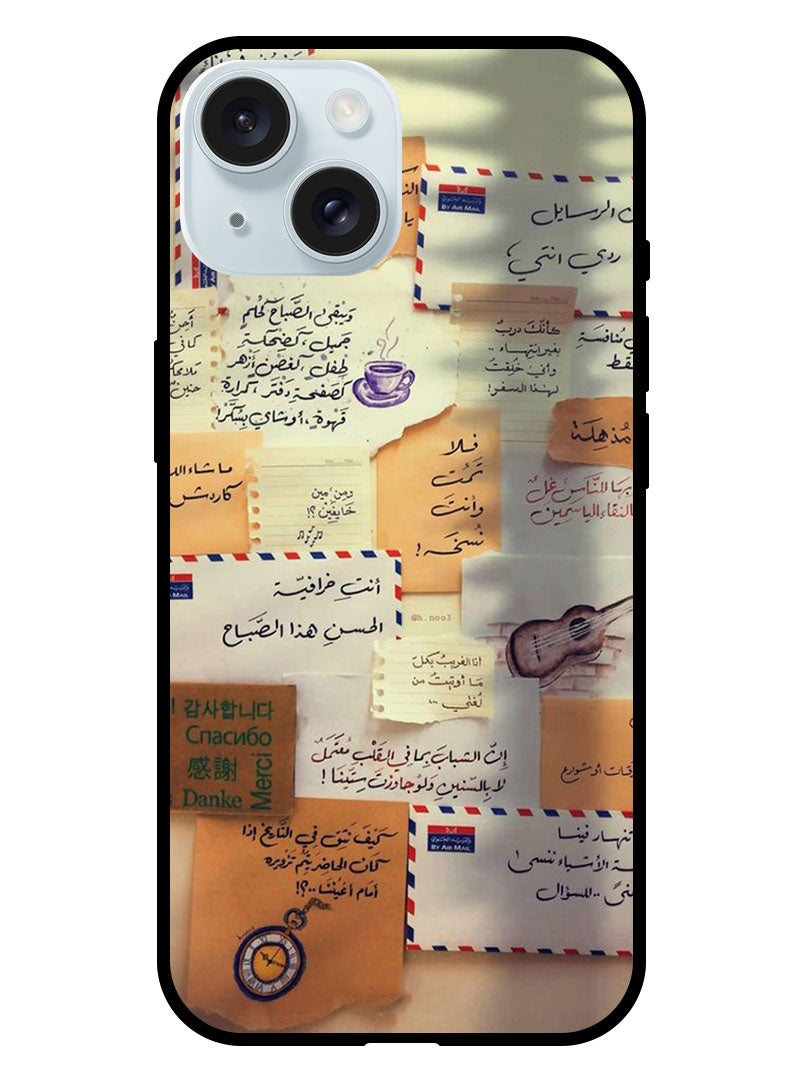 BY AIR MAIL
الرسايل
ردي انتي
وَيَبْقى الصَّباح كحُلمٍ
جَميل، كَضِحكةِ
طِفل، كغصْنٍ أزهر
كصَفحةِ دَفتر، كرارة
قهوةٍ، أوشاي بسُكّر!
كأنّك دربٌ
بغير انتهاء ..
وأني خُلِقتُ
لهذا السفر!
مُنافسَة
فقط
مُذهِلَة
فلا
تَمُت
وأنتَ
نُسخَة!
ماشاء الله
كاردش
ومن مين
خَايفِين ؟!
بهَا للنَّاسِ غَلٌّ
النقاء الياسَمِين
AIR MAIL
أنتِ خرافيّة
الحسنِ هذا الصَّبَاح
@h.noo3
أنا الغريبُ بكلّ
مَا أوتيتُ من
لُغتي ...
! 감사합니다
Спасибо
感謝
Merci
Danke
إنّ الشبابَ بِما في القَلْبِ مُعتَمَلُ
لا بِالسّنينِ وَلوْ جاوزتَ سِتّينَا !
طرقات أو شوارع
كَيفَ نَثِق في التَّاريخ إذا
كَانَ الحَاضِر يتِمُّ تَزويره
أمَام أعيُننَا ..؟!
BY AIR MAIL
تنهار فينا
الأشياء ننسى
.. للسؤال